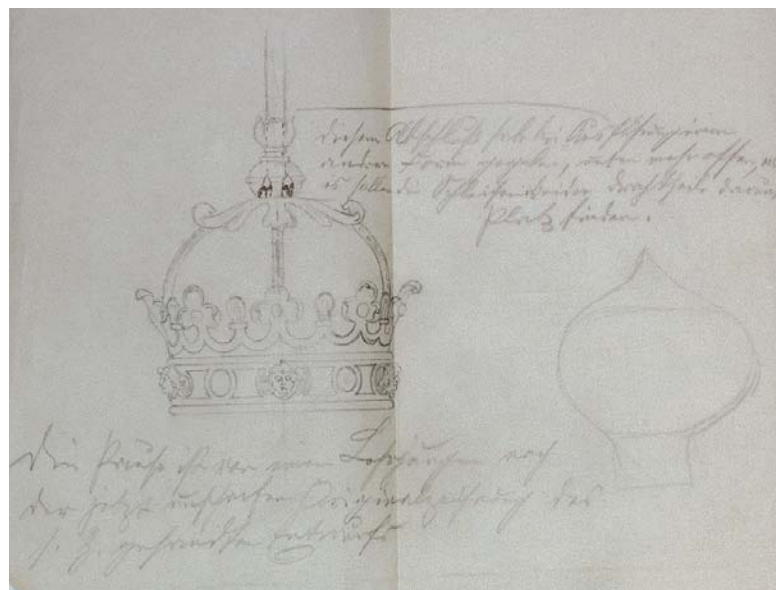 diesem Abschluß habe bei Ausführung eine
andere Form gegeben, unten mehr offen,
es sollen die Schleifen beider Drahtseile darin
Platz finden.
Die Pause ist von einem Lehrjungen nach
der jetzt Originalzeichnung des
s. Z. gesandten Entwurfs